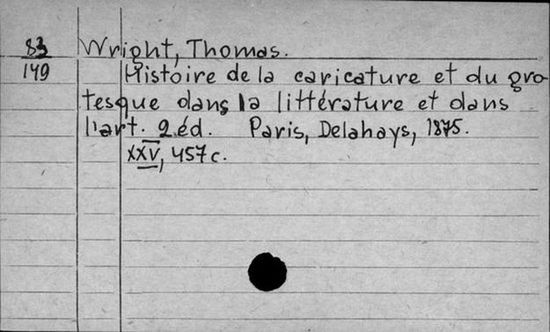 83 Wright, Thomas.
149 Histoire de la caricature et du gro-
tesque dans la littérature et dans
l'art. 2 éd. Paris, Delahays, 1875.
XXV, 457 c.